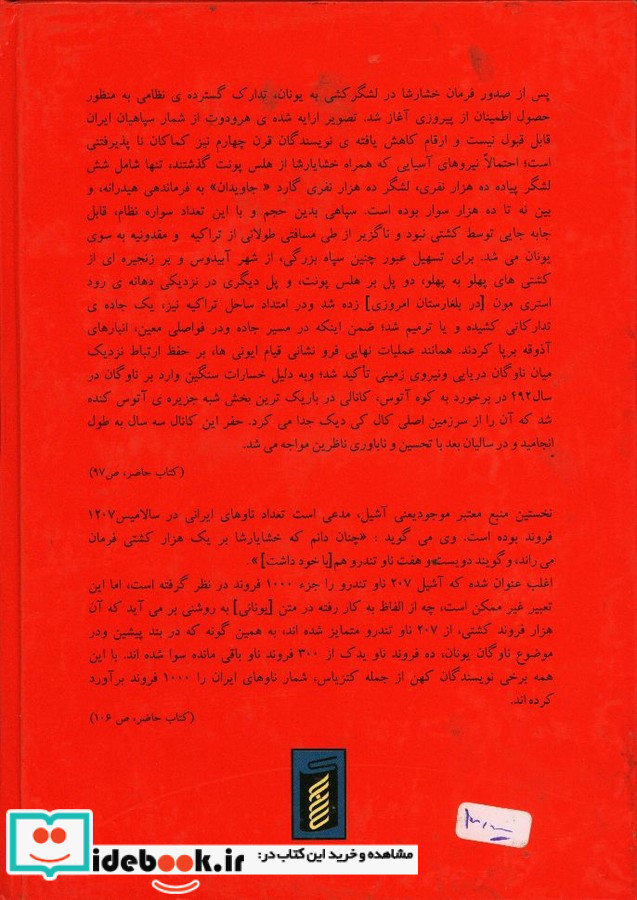 پس از صدور فرمان خشارشا در لشگرکشی به یونان، تدارک گسترده ی نظامی به منظور
حصول اطمینان از پیروزی آغاز شد. تصویر ارایه شده ی هرودوت از شمار سپاهیان ایران
قابل قبول نیست و ارقام کاهش یافته ی نویسندگان قرن چهارم نیز کماکان نا پذیرفتنی
است؛ احتمالاً نیروهای آسیایی که همراه خشایارشا از هلس پونت گذشتند، تنها شامل شش
لشگر پیاده ده هزار نفری، لشگر ده هزار نفری گارد « جاویدان» به فرماندهی هیدرانه، و
بین نه تا ده هزار سوار بوده است. سپاهی بدین حجم و با این تعداد سواره نظام، قابل
جابه جایی توسط کشتی نبود و ناگزیر از طی مسافتی طولانی از تراکیه و مقدونیه به سوی
یونان می شد. برای تسهیل عبور چنین سپاه بزرگی، از شهر آبیدوس و بر زنجیره ای از
کشتی های پهلو به پهلو، دو پل بر هلس پونت، و پل دیگری در نزدیکی دهانه ی رود
استری مون [در بلغارستان امروزی] زده شد ودر امتداد ساحل تراکیه نیز، یک جاده ی
تدارکاتی کشیده و یا ترمیم شد؛ ضمن اینکه در مسیر جاده ودر فواصلی معین، انبارهای
آذوقه برپا کردند. همانند عملیات نهایی فرو نشانی قیام ایونی ها، بر حفظ ارتباط نزدیک
میان ناوگان دریایی ونیروی زمینی تأکید شد؛ وبه دلیل خسارات سنگین وارد بر ناوگان در
سال۴۹۲ در برخورد به کوه آتوس، کانالی در باریک ترین بخش شبه جزیره ی آتوس کنده
شد که آن را از سرزمین اصلی کال کی دیک جدا می کرد. حفر این کانال سه سال به طول
انجامید و در سالیان بعد با تحسین و ناباوری ناظرین مواجه می شد.
(کتاب حاضر، ص۹۷)
نخستین منبع معتبر موجودیعنی آشیل، مدعی است تعداد ناوهای ایرانی در سالامیس۱۲۰۷
فروند بوده است. وی می گوید : «چنان دانم که خشایارشا بر یک هزار کشتی فرمان
می راند، و گویند دویست و هفت ناو تندرو هم [با خود داشت] » .
اغلب عنوان شده که آشیل ۲۰۷ ناو تندرو را جزء ۱۰۰۰ فروند در نظر گرفته است، اما این
تعبیر غیر ممکن است، چه از الفاظ به کار رفته در متن [یونانی] به روشنی بر می آید که آن
هزار فروند کشتی، از ۲۰۷ ناو تندرو متمایز شده اند، به همین گونه که در بند پیشین ودر
موضوع ناوگان یونان، ده فروند ناو یدک از ۳۰۰ فروند ناو باقی مانده سوا شده اند. با این
همه برخی نویسندگان کهن از جمله کتزیاس، شمار ناوهای ایران را ۱۰۰۰ فروند برآورد
کرده اند.
(کتاب حاضر، ص ۱۰۶)
مشاهده و خرید این کتاب در:
idebook.ir